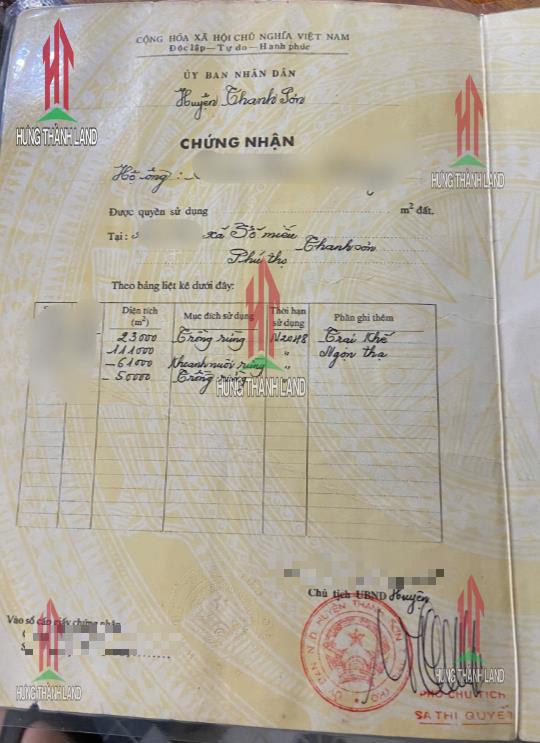 HƯNG THÀNH LAND
HƯNG THÀNH LAND
CỘNG HÒA XÃ HỘI CHỦ NGHĨA VIỆT NAM
Độc lập — Tự do — Hạnh phúc
ỦY BAN NHÂN DÂN
Huyện Thanh Sơn
CHỨNG NHẬN
Hộ ông :
Được quyền sử dụng m² đất.
Tại : xã Sơn miếu Thanh sơn
Phú thọ
Theo bảng liệt kê dưới đây:
Diện tích (m²) Mục đích sử dụng Thời hạn sử dụng Phần ghi thêm
23000 Trồng rừng N2048 Trại Khế
111000 " Ngọn thạ
- 61000 Khoanh nuôi rừng "
- 50000 Trồng rừng
HƯNG THÀNH LAND
Chủ tịch UBND Huyện
Vào sổ cấp giấy chứng nhận
ỦY BAN N.D HUYỆN THANH SƠN
PHÓ CHỦ TỊCH
HƯNG THÀNH LAND
HƯNG THÀNH LAND
SA THỊ QUYẾT